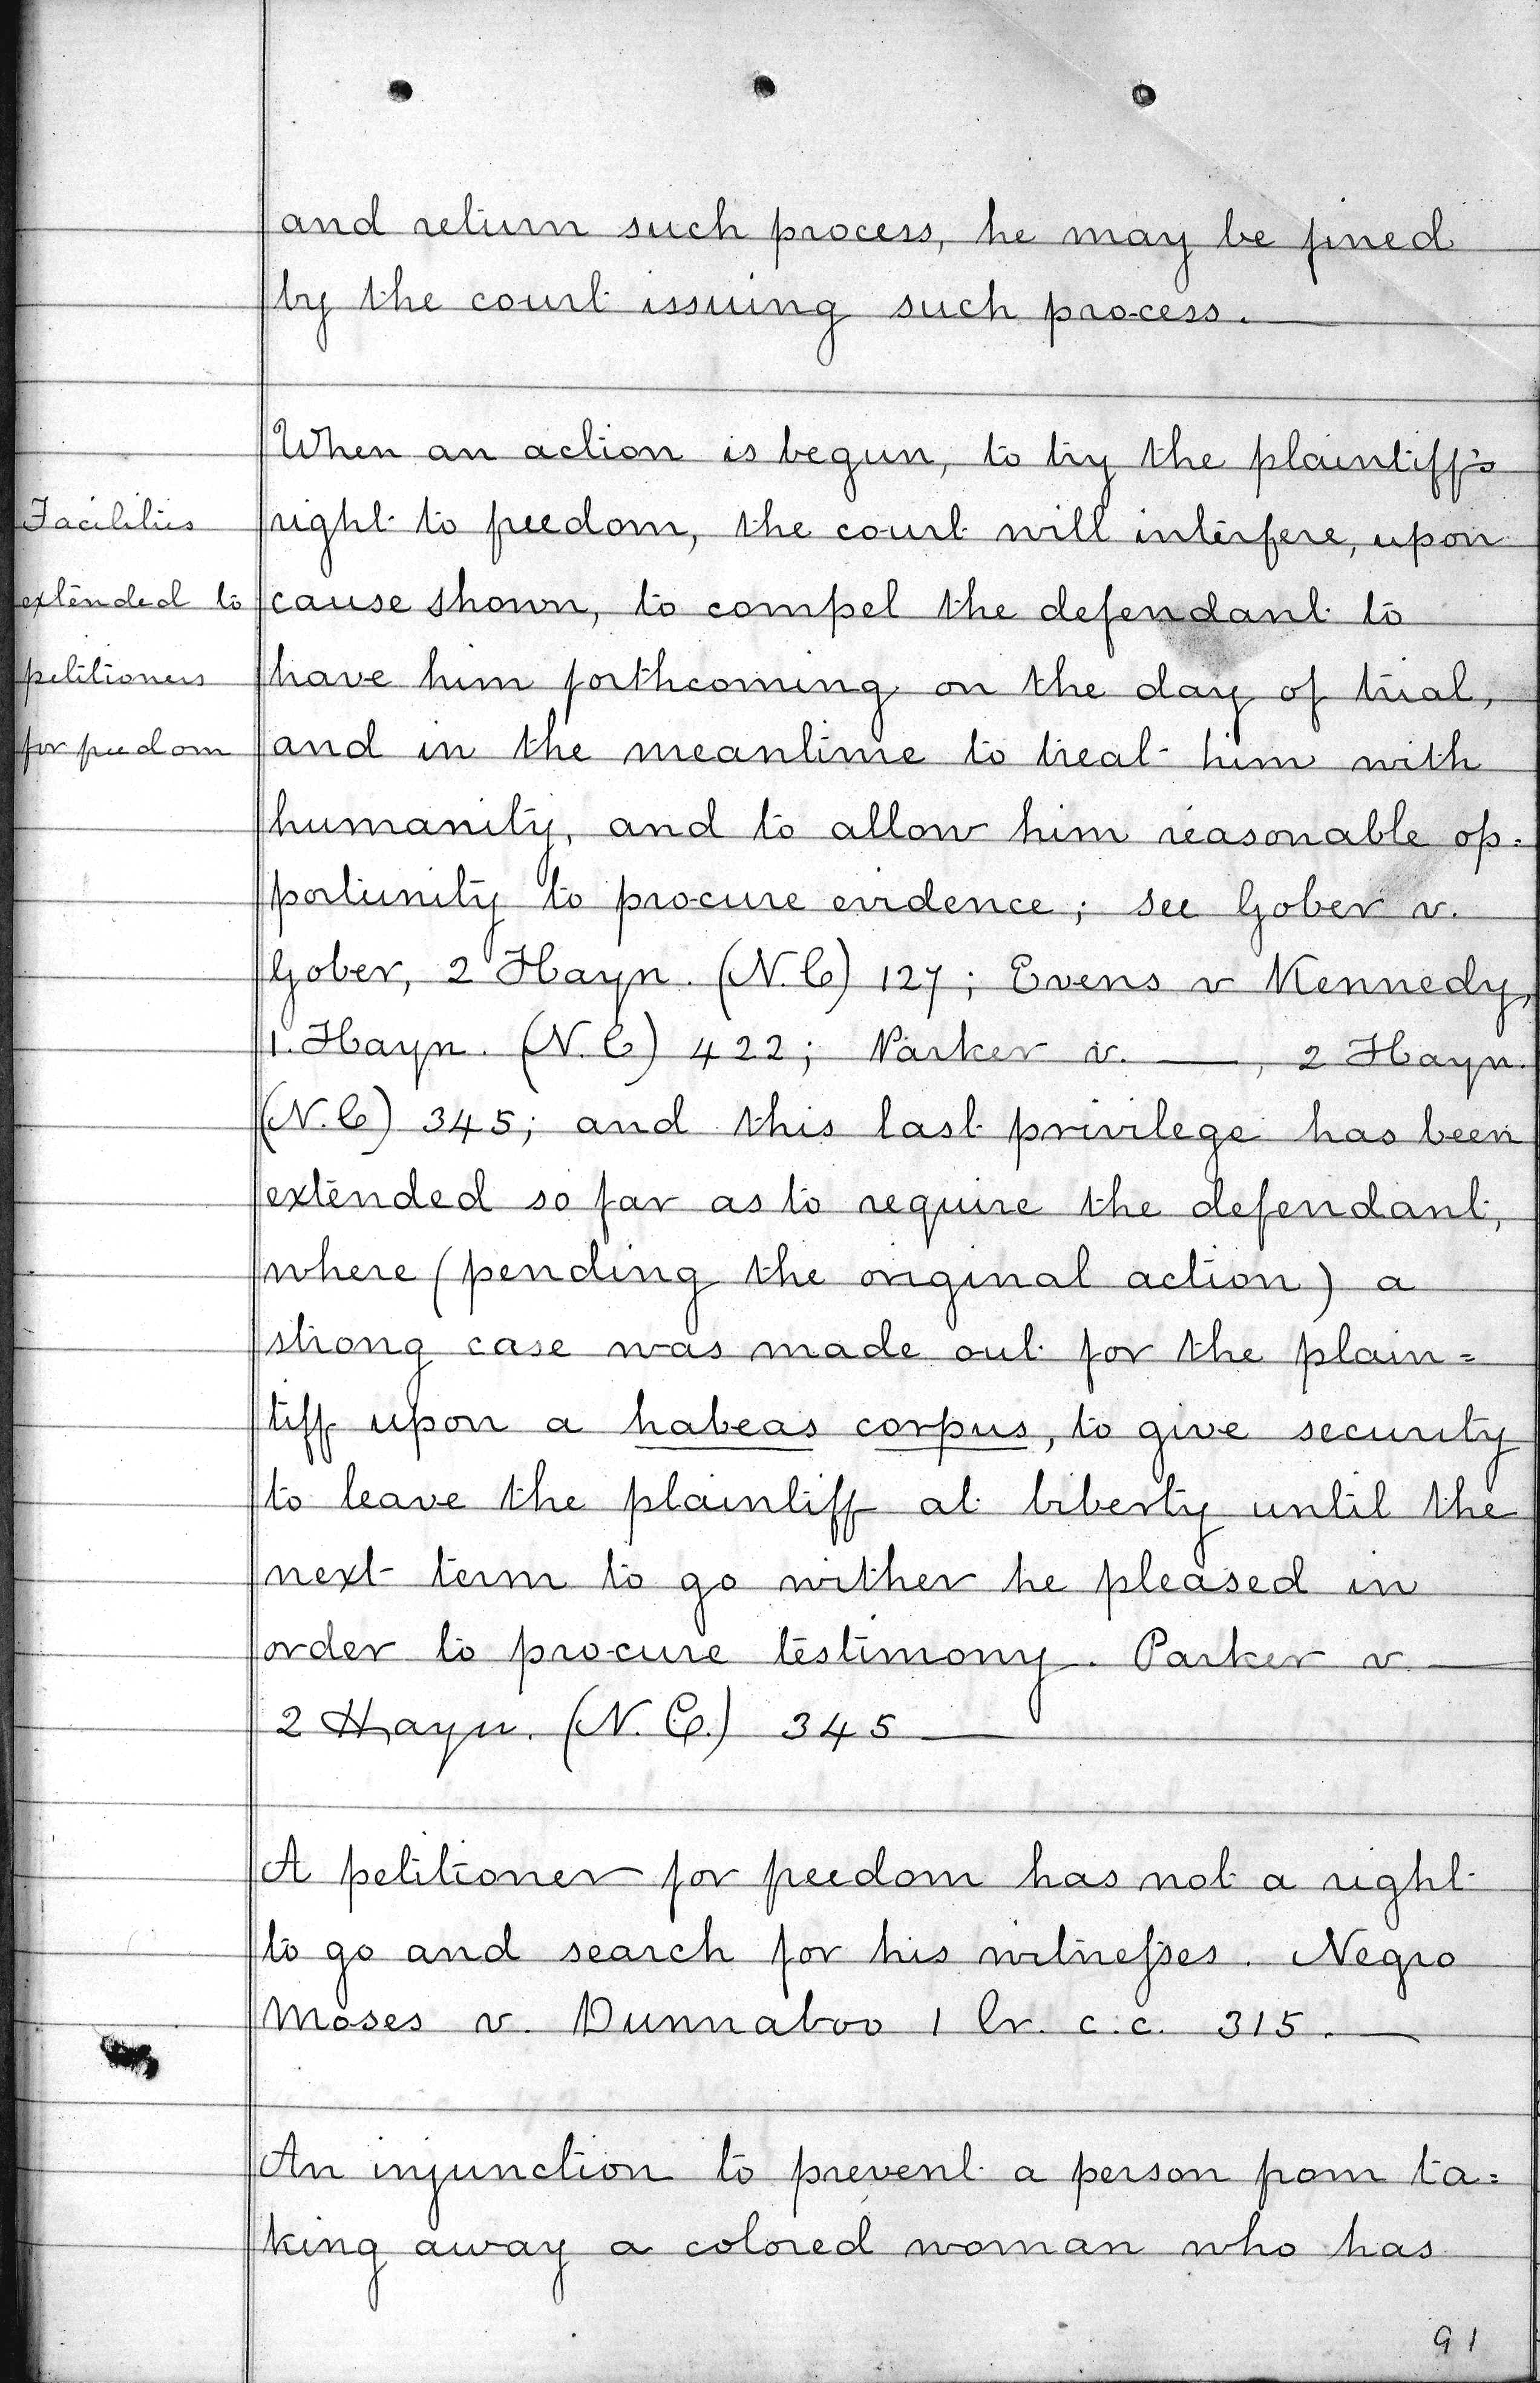 and return such process, he may be fined
by the court issuing such process. —
When an action is begun, to try the plaintiff's
Facilities
right to freedom, the court will interfere, upon
extended to
cause shown, to compel the defendant to
petitioners
have him forthcoming on the day of trial,
for freedom
and in the meantime to treat him with
humanity, and to allow him reasonable op-
portunity to procure evidence; see Gober v.
Gober, 2 Hayn. (N.C) 127; Evens v Kennedy,
1. Hayn. (N.C) 422; Parker v. —, 2 Hayn.
(N.C) 345; and this last privilege has been
extended so far as to require the defendant,
where (pending the original action) a
strong case was made out for the plain=
tiff upon a habeas corpus, to give security
to leave the plaintiff at liberty until the
next term to go wither he pleased in
order to procure testimony. Parker v —
2 Hayn. (N.C.) 345 —
A petitioner for freedom has not a right
to go and search for his witnesses. Negro
Moses v. Dunnaboo 1 Cr. c.c. 315. —
An injunction to prevent a person from ta=
king away a colored woman who has
91